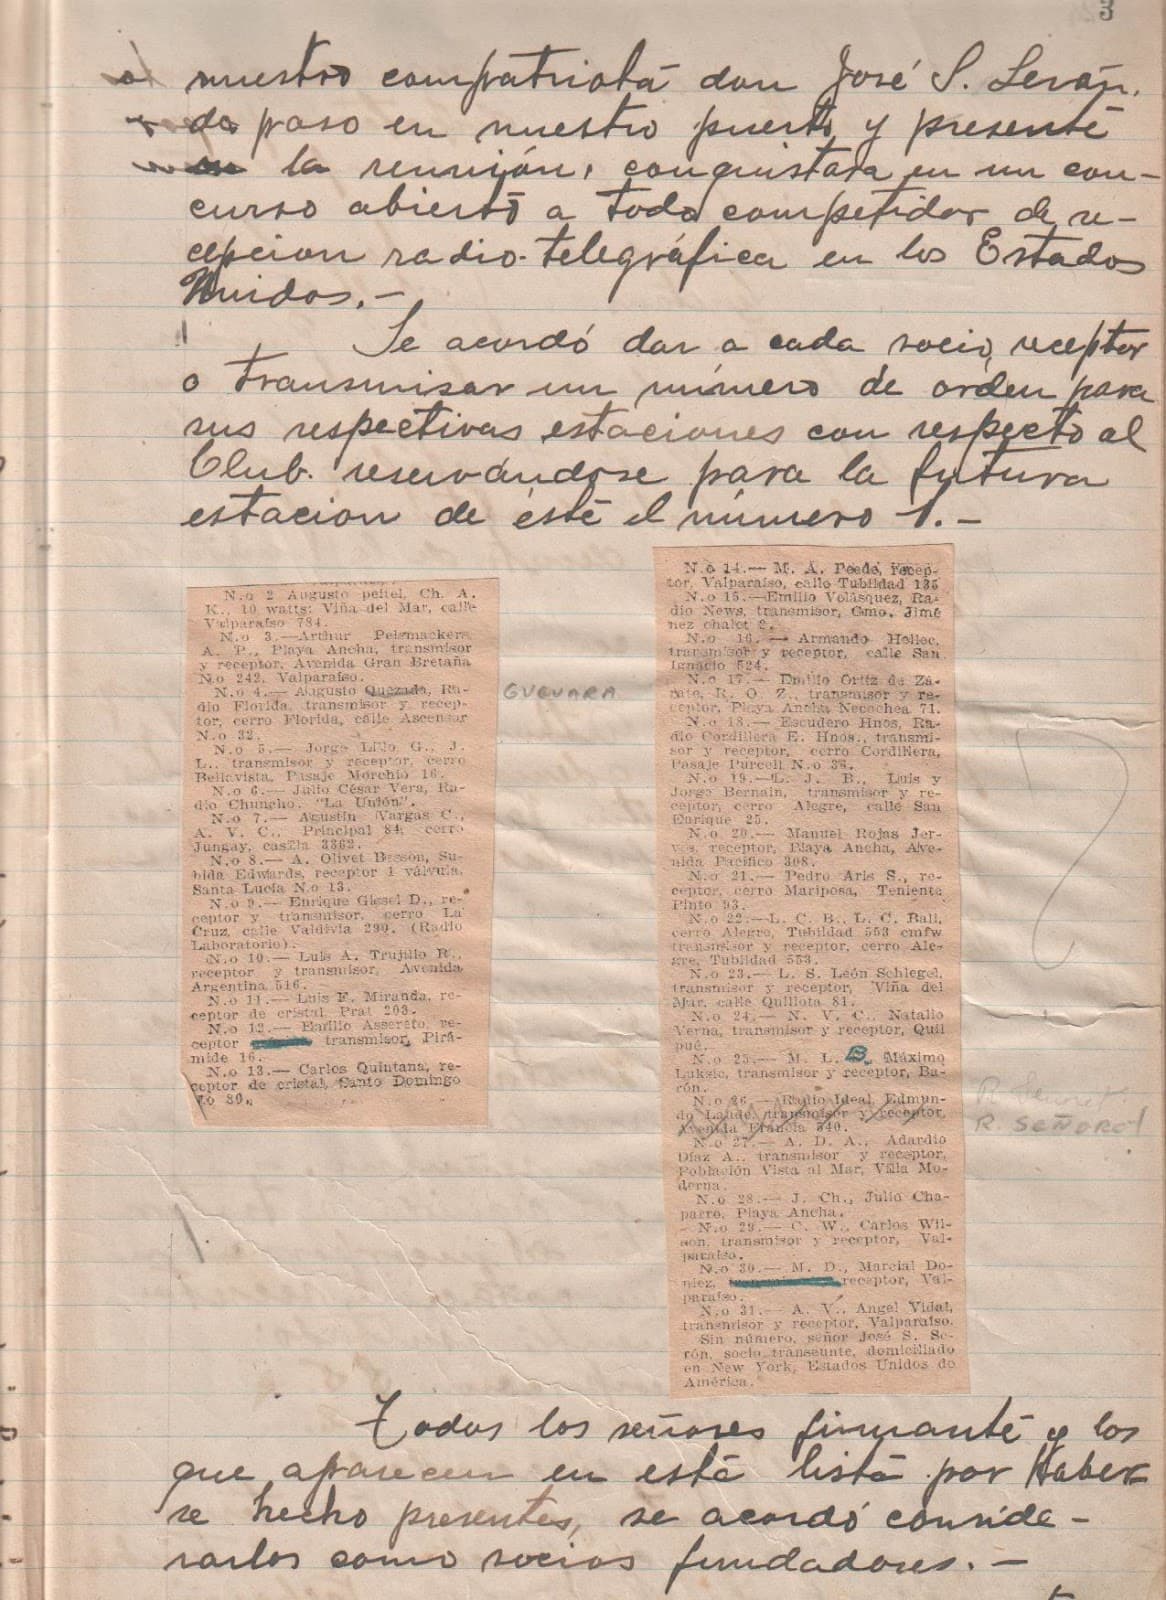 3
nuestro compatriota don José S. Serón,
de paso en nuestro puerto y presente
en la reunión, conquistara en un con-
curso abierto a todo competidor de re-
cepcion radio-telegráfica en los Estados
Unidos.-
Se acordó dar a cada socio, receptor
o transmisor un número de orden para
sus respectivas estaciones con respecto al
Club. reservándose para la futura
estacion de éste el número 1.-
N.o 2 Augusto peitel, Ch. A.
K., 10 watts; Viña del Mar, calle
Valparaíso 784.
N.o 3.—Arthur Peismackers
A. P., Playa Ancha, transmisor
y receptor, Avenida Gran Bretaña
N.o 242, Valparaíso.
N.o 4.— Augusto Quezada, Ra-
dio Florida, transmisor y recep-
tor, cerro Florida, calle Ascensor
N.o 32.
GUEVARA
N.o 5.— Jorge Lillo G., J.
L., transmisor y receptor, cerro
Bellavista, Pasaje Morchio 16.
N.o 6.— Julio César Vera, Ra-
dio Chuncho. "La Unión".
N.o 7.— Agustín Vargas C.,
A. V. C., Principal 84, cerro
Jungay, casilla 3362.
N.o 8.— A. Olivet Besson, Su-
bida Edwards, receptor 1 válvula,
Santa Lucía N.o 13.
N.o 9.— Enrique Giesel D., re-
ceptor y transmisor, cerro La
Cruz, calle Valdivia 290. (Radio
Laboratorio).
N.o 10.— Luis A. Trujillo R.,
receptor y transmisor, Avenida
Argentina 516.
N.o 11.— Luis F. Miranda, re-
ceptor de cristal, Prat 203.
N.o 12.— Emilio Assereto, re-
ceptor transmisor, Pirá-
mide 16.
N.o 13.— Carlos Quintana, re-
ceptor de cristal, Santo Domingo
No 89.
N.o 14.— M. A. Poede, recep-
tor, Valparaíso, calle Tubildad 135
N.o 15.—Emilio Velásquez, Ra-
dio News, transmisor, Gmo. Jimé
nez chalet 2.
N.o 16.— Armando Hollec,
transmisor y receptor, calle San
Ignacio 524.
N.o 17.— Emilio Ortiz de Zá-
rate, R. O. Z., transmisor y re-
ceptor, Playa Ancha, Necochea 71.
N.o 18.— Escudero Hnos, Ra-
dio Cordillera E. Hnos., transmi-
sor y receptor, cerro Cordillera,
Pasaje Purcell N.o 36.
N.o 19.—L. J. B., Luis y
Jorge Bernain, transmisor y re-
ceptor, cerro Alegre, calle San
Enrique 25.
N.o 20.— Manuel Rojas Jer-
ves, receptor, Playa Ancha, Ave-
nida Pacífico 308.
N.o 21.— Pedro Aris S., re-
ceptor, cerro Mariposa, Teniente
Pinto 93.
N.o 22.—L. C. B., L. C. Ball,
cerro Alegre, Tubildad 553 cmfw
transmisor y receptor, cerro Ale-
gre, Tubildad 553.
N.o 23.— L. S. León Schlegel,
transmisor y receptor, Viña del
Mar, calle Quillota 81.
N.o 24.— N. V. C., Natalio
Verna, transmisor y receptor, Quil
pué.
N.o 25.— M. L. B. Máximo
Luksic, transmisor y receptor, Ba-
rón.
N.o 26.— Radio Ideal, Edmun-
do Laude, transmisor y receptor,
Avenida Francia 540.
R. SEÑORET
N.o 27.— A. D. A., Adardio
Díaz A., transmisor y receptor,
Población Vista al Mar, Villa Mo-
derna.
N.o 28.— J. Ch., Julio Cha-
parro, Playa Ancha.
N.o 29.— C. W., Carlos Wil-
son, transmisor y receptor, Val-
paraíso.
N.o 30.— M. D., Marcial Do-
niez, receptor, Val-
paraíso.
N.o 31.— A. V., Angel Vidal,
transmisor y receptor, Valparaíso.
Sin número, señor José S. Se-
rón, socio transeunte, domiciliado
en New York, Estados Unidos de
América.
Todos los señores firmante y los
que aparecen en esta lista por Haber
se hecho presentes, se acordó conside-
rarlos como socios fundadores.-